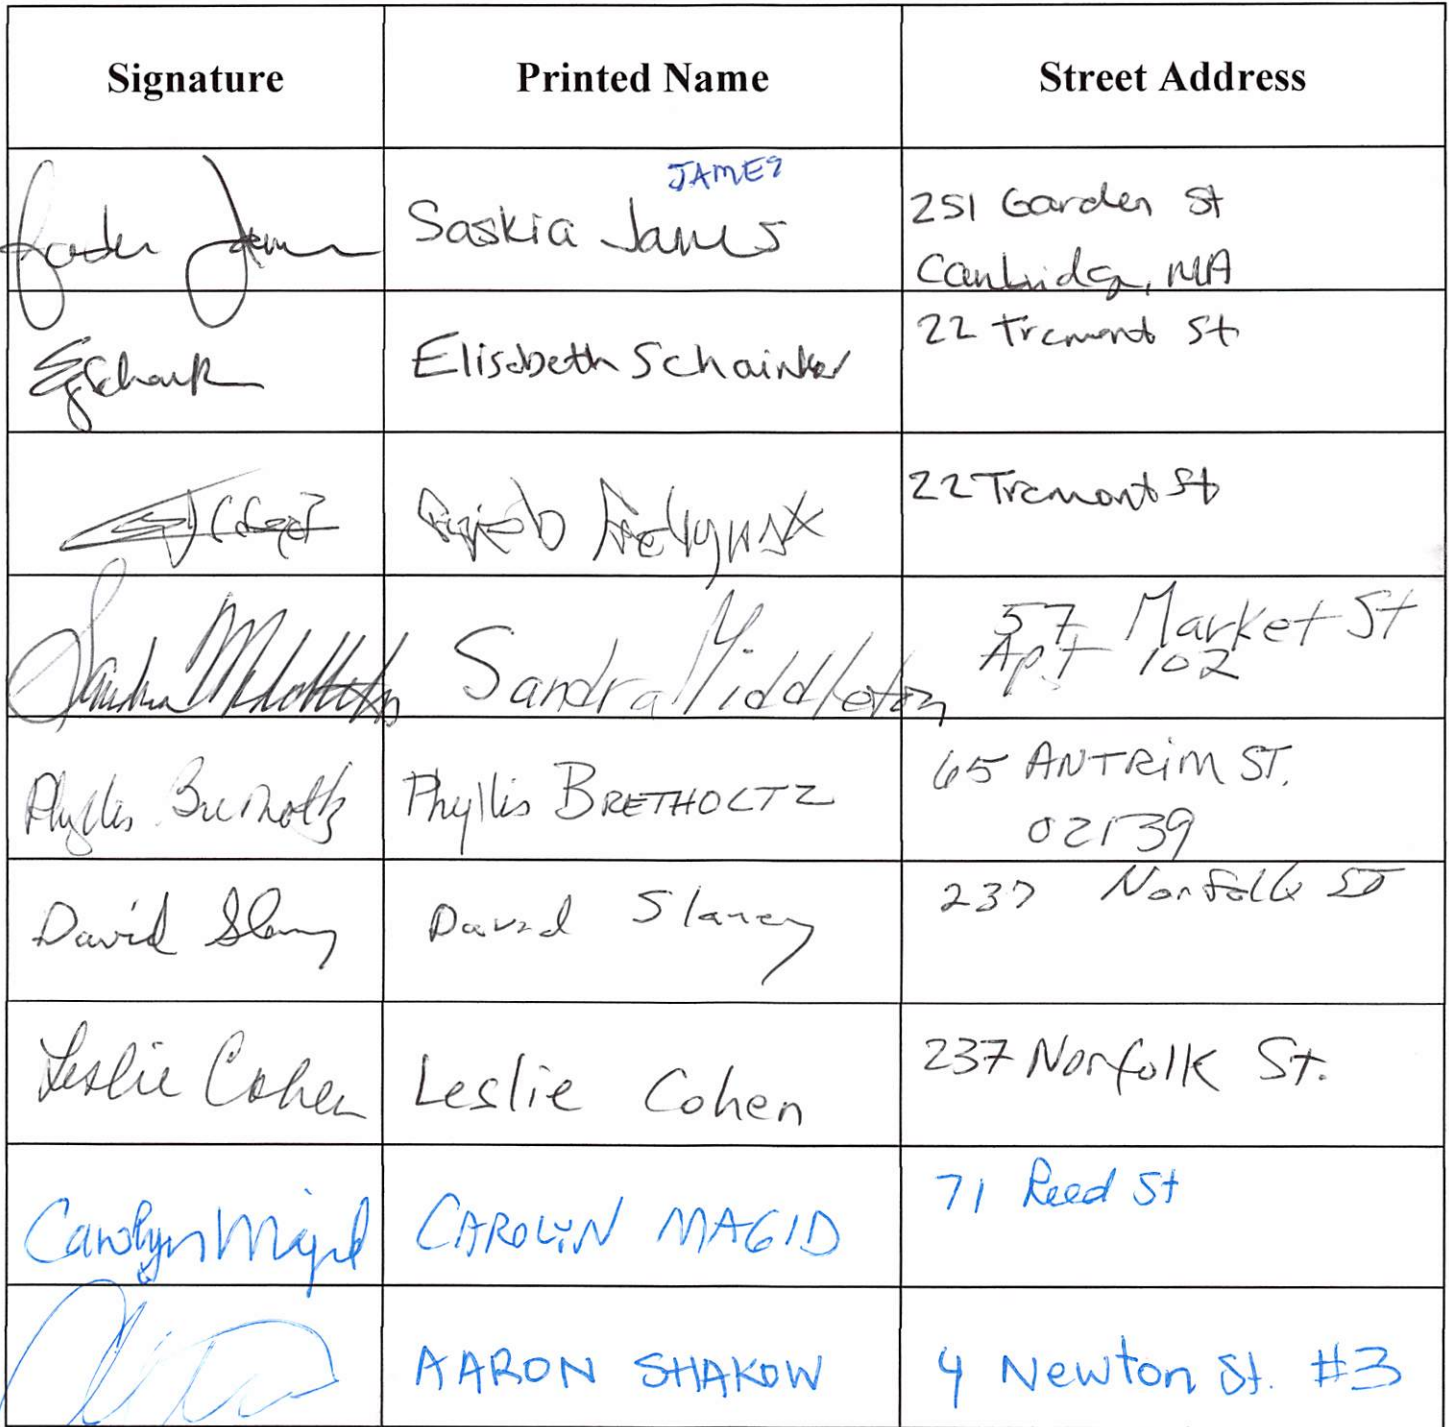 Signature Printed Name Street Address
JAMES
Saskia James 251 Garden St
Cambridge, MA
Elisabeth Schainker 22 Tremont St
22 Tremont St
Sandra Middleton 57 Market St
Apt 102
Phyllis Bretholtz Phyllis BRETHOLTZ 65 ANTRIM ST.
02139
David Slaney David Slaney 237 Norfolk St
Leslie Cohen Leslie Cohen 237 Norfolk St.
Carolyn Magid CAROLYN MAGID 71 Reed St
AARON SHAKOW 4 Newton St. #3